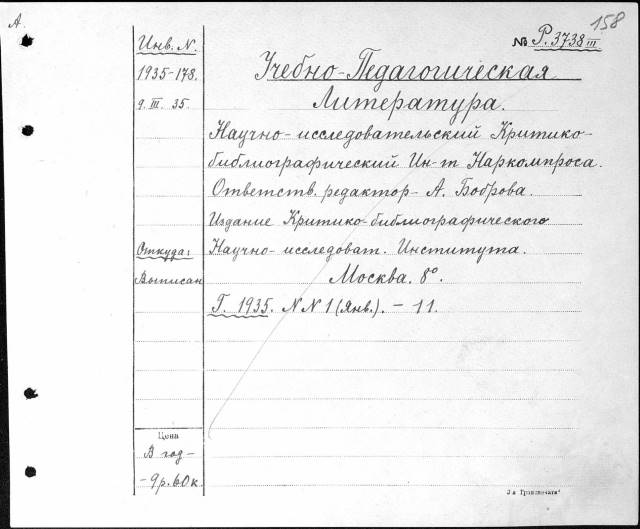 А.
158
№ Р.3738 III
Инв. N.
1935-178.
9. III. 35.
Учебно-Педагогическая
Литература.
Научно-исследовательский Критико-
библиографический Ин-т Наркомпроса.
Ответств. редактор- А. Боброва.
Издание Критико-библиографического
Научно-исследоват. Института.
Москва. 8°.
Г. 1935. NN 1 (Янв.). - 11.
Откуда:
Выписан
Цена
В год-
-9р.60к.